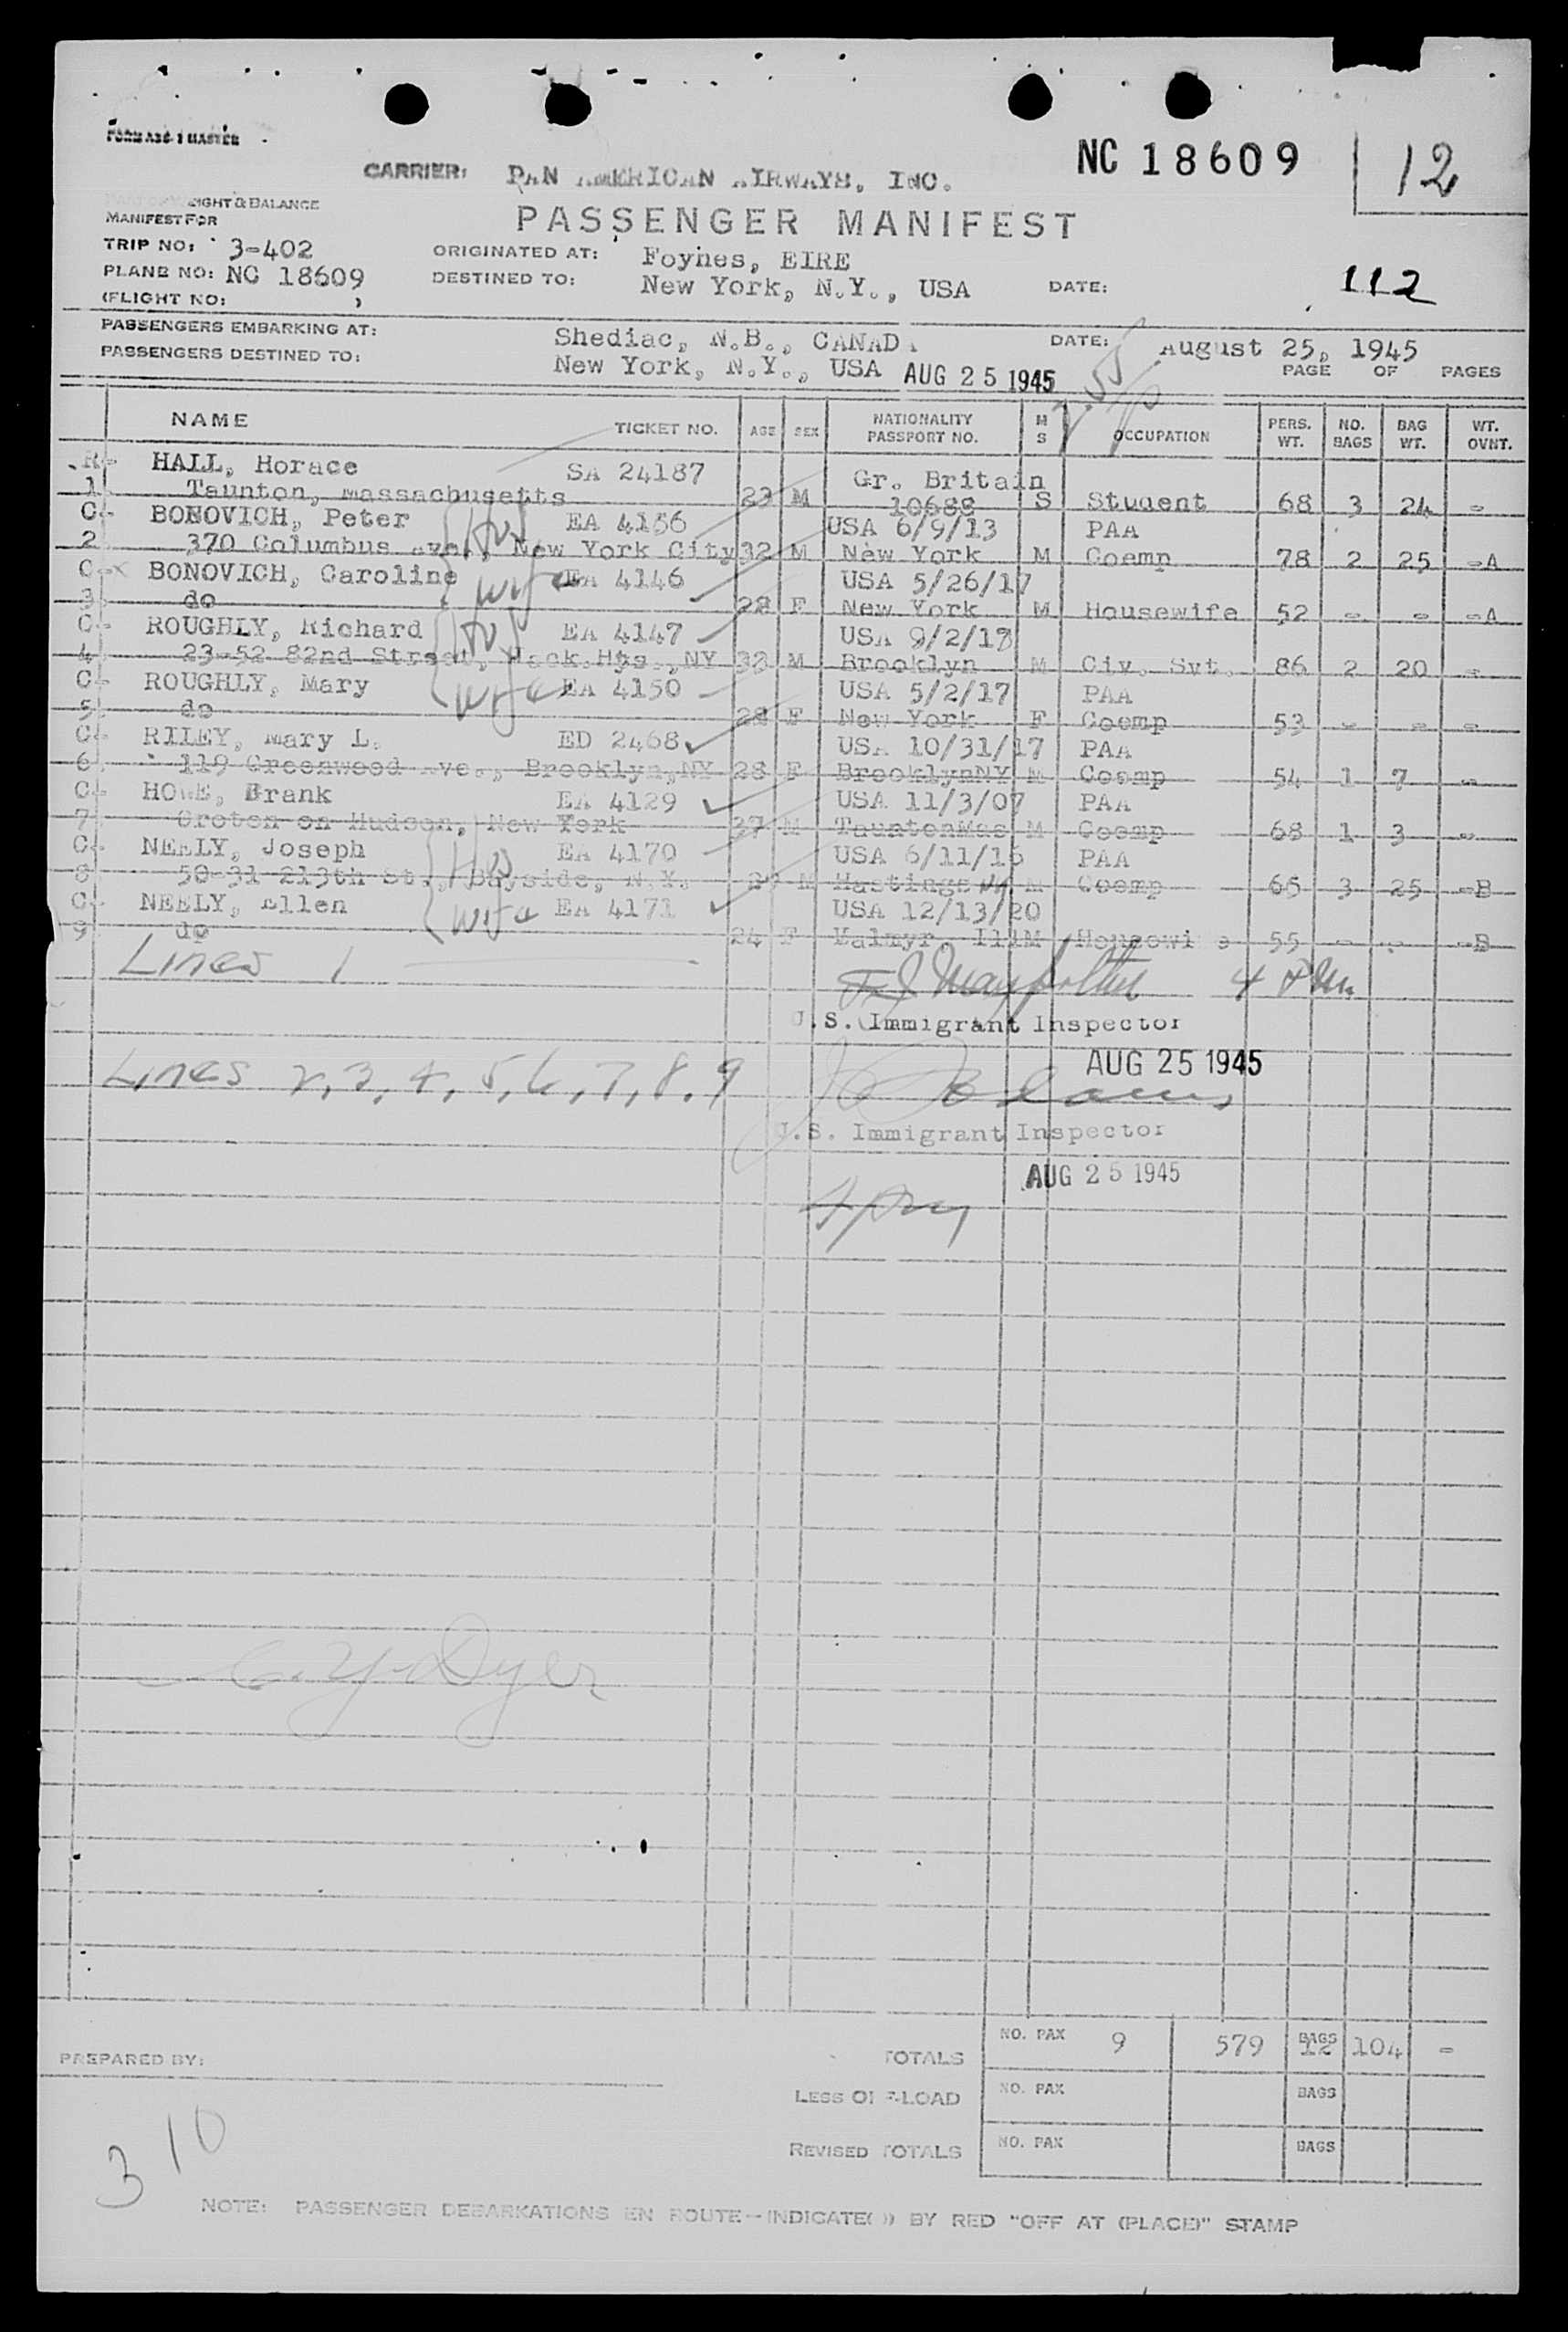 FORM A3S-1 MASTER
NC 18609
12
CARRIER: PAN AMERICAN AIRWAYS, INC.
WEIGHT & BALANCE
MANIFEST FOR
PASSENGER MANIFEST
TRIP NO: 3-402
ORIGINATED AT: Foynes, EIRE
PLANE NO: NC 18609
DESTINED TO: New York, N.Y., USA
DATE:
112
(FLIGHT NO: )
PASSENGERS EMBARKING AT: Shediac, N.B., CANADA
DATE: August 25, 1945
PASSENGERS DESTINED TO: New York, N.Y., USA AUG 25 1945
PAGE OF PAGES
NAME TICKET NO. AGE SEX NATIONALITY PASSPORT NO. M S OCCUPATION PERS. WT. NO. BAGS BAG WT. WT. OVNT.
R- HALL, Horace SA 24187 Gr. Britain
1 Taunton, Massachusetts 23 M 10688 S Student 68 3 24 -
C- BONOVICH, Peter EA 4156 USA 6/9/13 PAA
2 370 Columbus Ave., New York City 32 M New York M Coemp 78 2 25 -A
C- BONOVICH, Caroline wife EA 4146 USA 5/26/17
3 do 28 F New York M Housewife 52 - - -A
C- ROUGHLY, Richard EA 4147 USA 9/2/13
4 23-52 82nd Street, Jack.Hts.,NY 32 M Brooklyn M Civ. Svt. 86 2 20 -
C- ROUGHLY, Mary wife EA 4150 USA 5/2/17 PAA
5 do 28 F New York F Coemp 53 - - -
C- RILEY, Mary L. ED 2468 USA 10/31/17 PAA
6 119 Greenwood Ave., Brooklyn,NY 28 F BrooklynNY M Coemp 54 1 7 -
C- HOWE, Frank EA 4129 USA 11/3/07 PAA
7 Croton on Hudson, New York 37 M TauntonMas M Coemp 68 1 3 -
C- NEELY, Joseph EA 4170 USA 6/11/16 PAA
8 50-31 213th St., Bayside, N.Y. 29 M Hastings M Coemp 65 3 25 -B
C- NEELY, Ellen wife EA 4171 USA 12/13/20
9 do 24 F Ill M Housewife 55 - - -B
Lines 1
4 PM
U.S. Immigrant Inspector
AUG 25 1945
Lines 2, 3, 4, 5, 6, 7, 8, 9
U.S. Immigrant Inspector
AUG 25 1945
4 pm
C. Y. Dyer
PREPARED BY:
TOTALS NO. PAX 9 579 BAGS 12 104 -
LESS OFF-LOAD NO. PAX BAGS
REVISED TOTALS NO. PAX BAGS
3 10
NOTE: PASSENGER DEBARKATIONS EN ROUTE—INDICATE( ) BY RED "OFF AT (PLACE)" STAMP